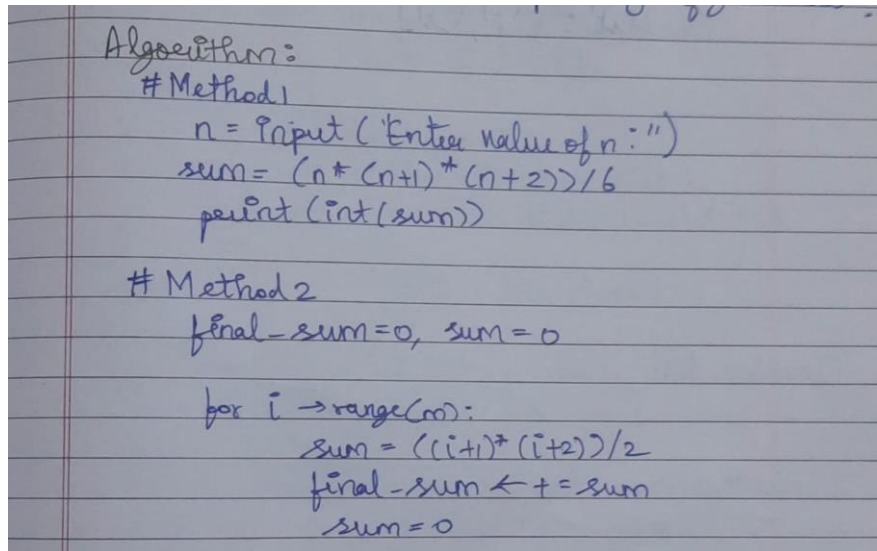 Algorithm:
# Method 1
n = input ("Enter value of n:")
sum = (n* (n+1) * (n+2))/6
print (int(sum))
# Method 2
final_sum=0, sum=0
for i → range(n):
sum = ((i+1)* (i+2))/2
final_sum ← += sum
sum=0